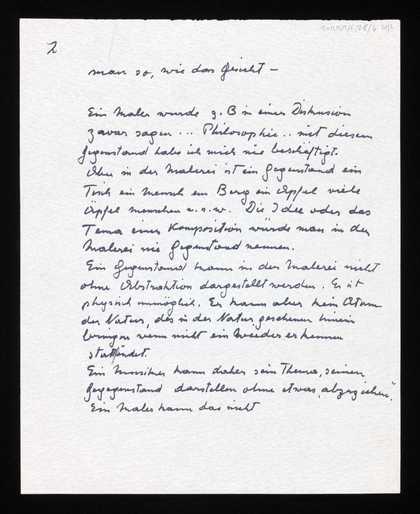 2
man so, wie das Gesicht –
Ein Maler würde z. B in einer Diskusion
zwar sagen ... Philosophie .. mit diesem
Gegenstand habe ich mich nie beschäftigt.
Aber in der Malerei ist ein Gegenstand ein
Tisch ein Mensch ein Berg ein Apfel viele
Äpfel menschen u.s.w. Die Idee oder das
Tema einer Komposition würde man in der
Malerei nie Gegenstand nennen.
Ein Gegenstand kann in der Malerei nicht
ohne Abstraktion dargestellt werden. Es ist
physisch unmöglich. Es kann aber kein Atom
der Natur, das in der Natur geschehen hinein
bringen wenn nicht ein Wieder erkennen
stattfindet.
Ein Musiker kann daher sein Thema, seinen
Gegegenstand darstellen ohne etwas „abzuziehen".
Ein Maler kann das nicht